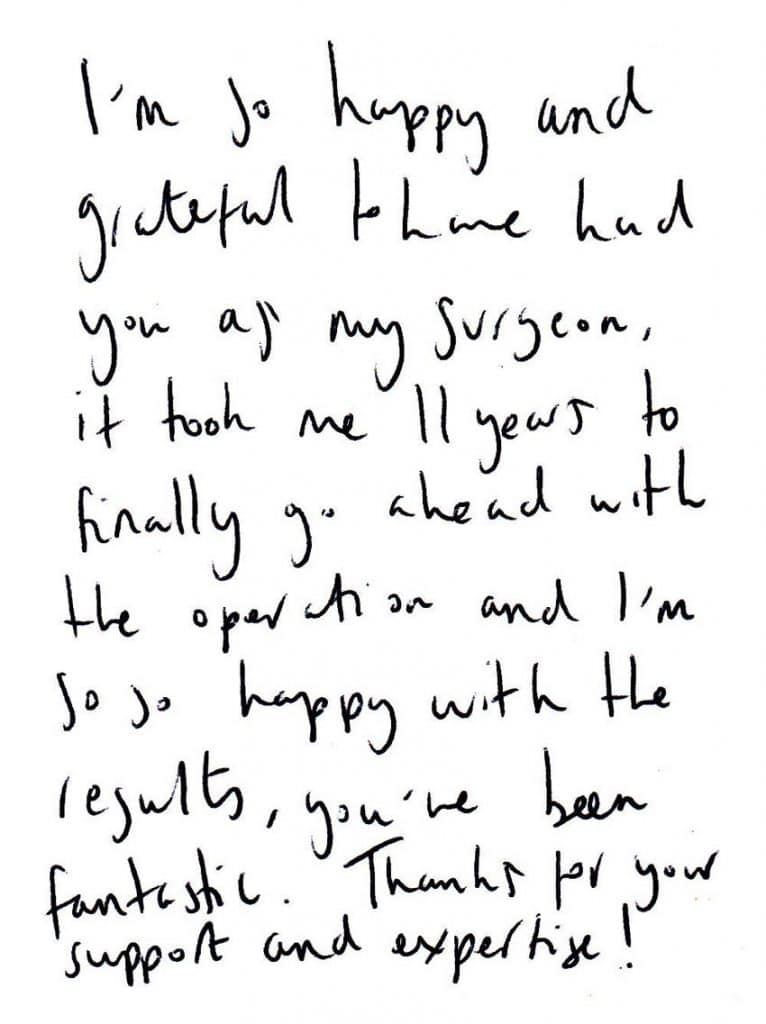 I'm so happy and
grateful to have had
you as my surgeon,
it took me 11 years to
finally go ahead with
the operation and I'm
so so happy with the
results, you've been
fantastic. Thanks for your
support and expertise!